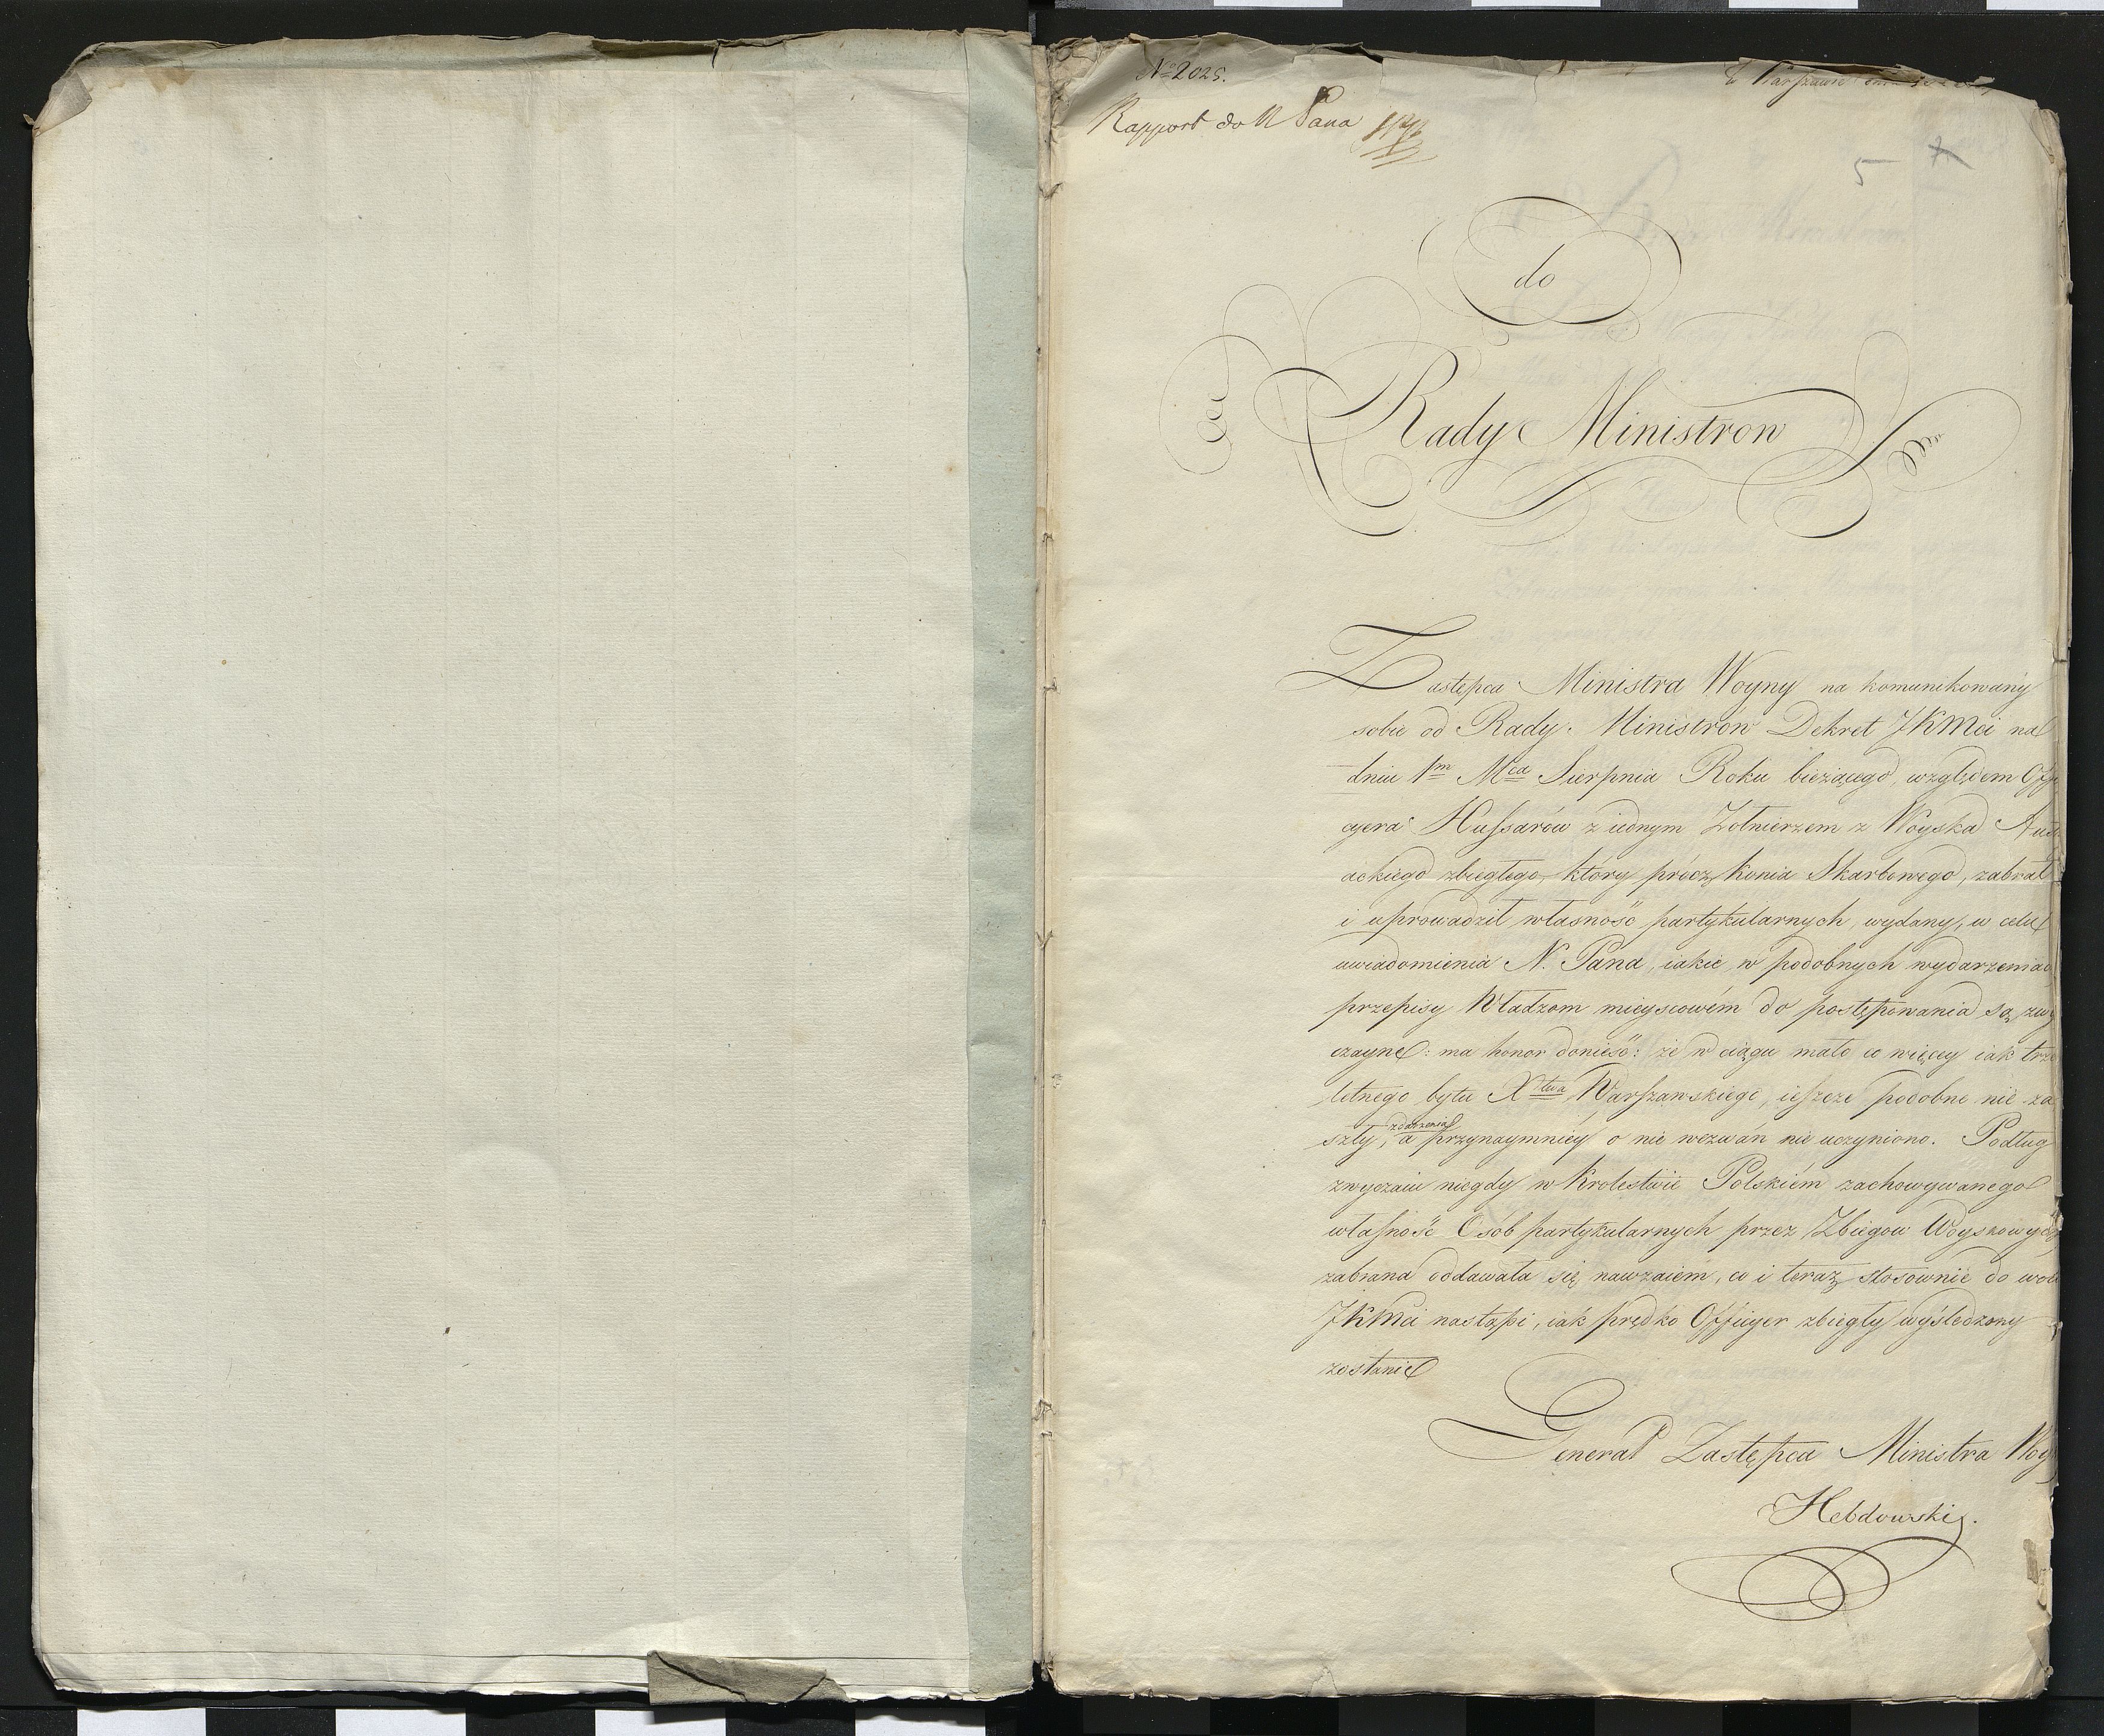 No 2025.
w Warszawie dnia
Rapport do N Pana
5
do
Rady Ministrow
Zastępca Ministra Woyny na komunikowany
sobie od Rady Ministrow Dekret JKMci na
dniu 1m Mca Sierpnia Roku bieżącego, względem Offi
cyera Hussarów z iednym Żołnierzem z Woyska Aust
ackiego zbiegłego, który prócz konia Skarbowego, zabrał
i uprowadził własność partykularnych, wydany, w celu
uwiadomienia N. Pana, iakie w podobnych wydarzeniac
przepisy Władzom mieyscowém do postępowania są zwy
czayne: ma honor donieść: że w ciągu mało co więcey iak trze
letnego bytu Xtwa Warszawskiego, ieszcze podobne nie za
szły, zdarzenia a przynaymniéy o nie wezwań nie uczyniono. Podług
zwyczaiu niegdy w Krolestwie Polskiém zachowywanego
własność Osób partykularnych przez Zbiegow Woyskowych
zabrana oddawała się nawzaiem, co i teraz stosownie do wol
JKMci nastąpi, iak prędko Officyer zbiegły wyśledzony
zostanie
Generał Zastępca Ministra Woy
Hebdowski.